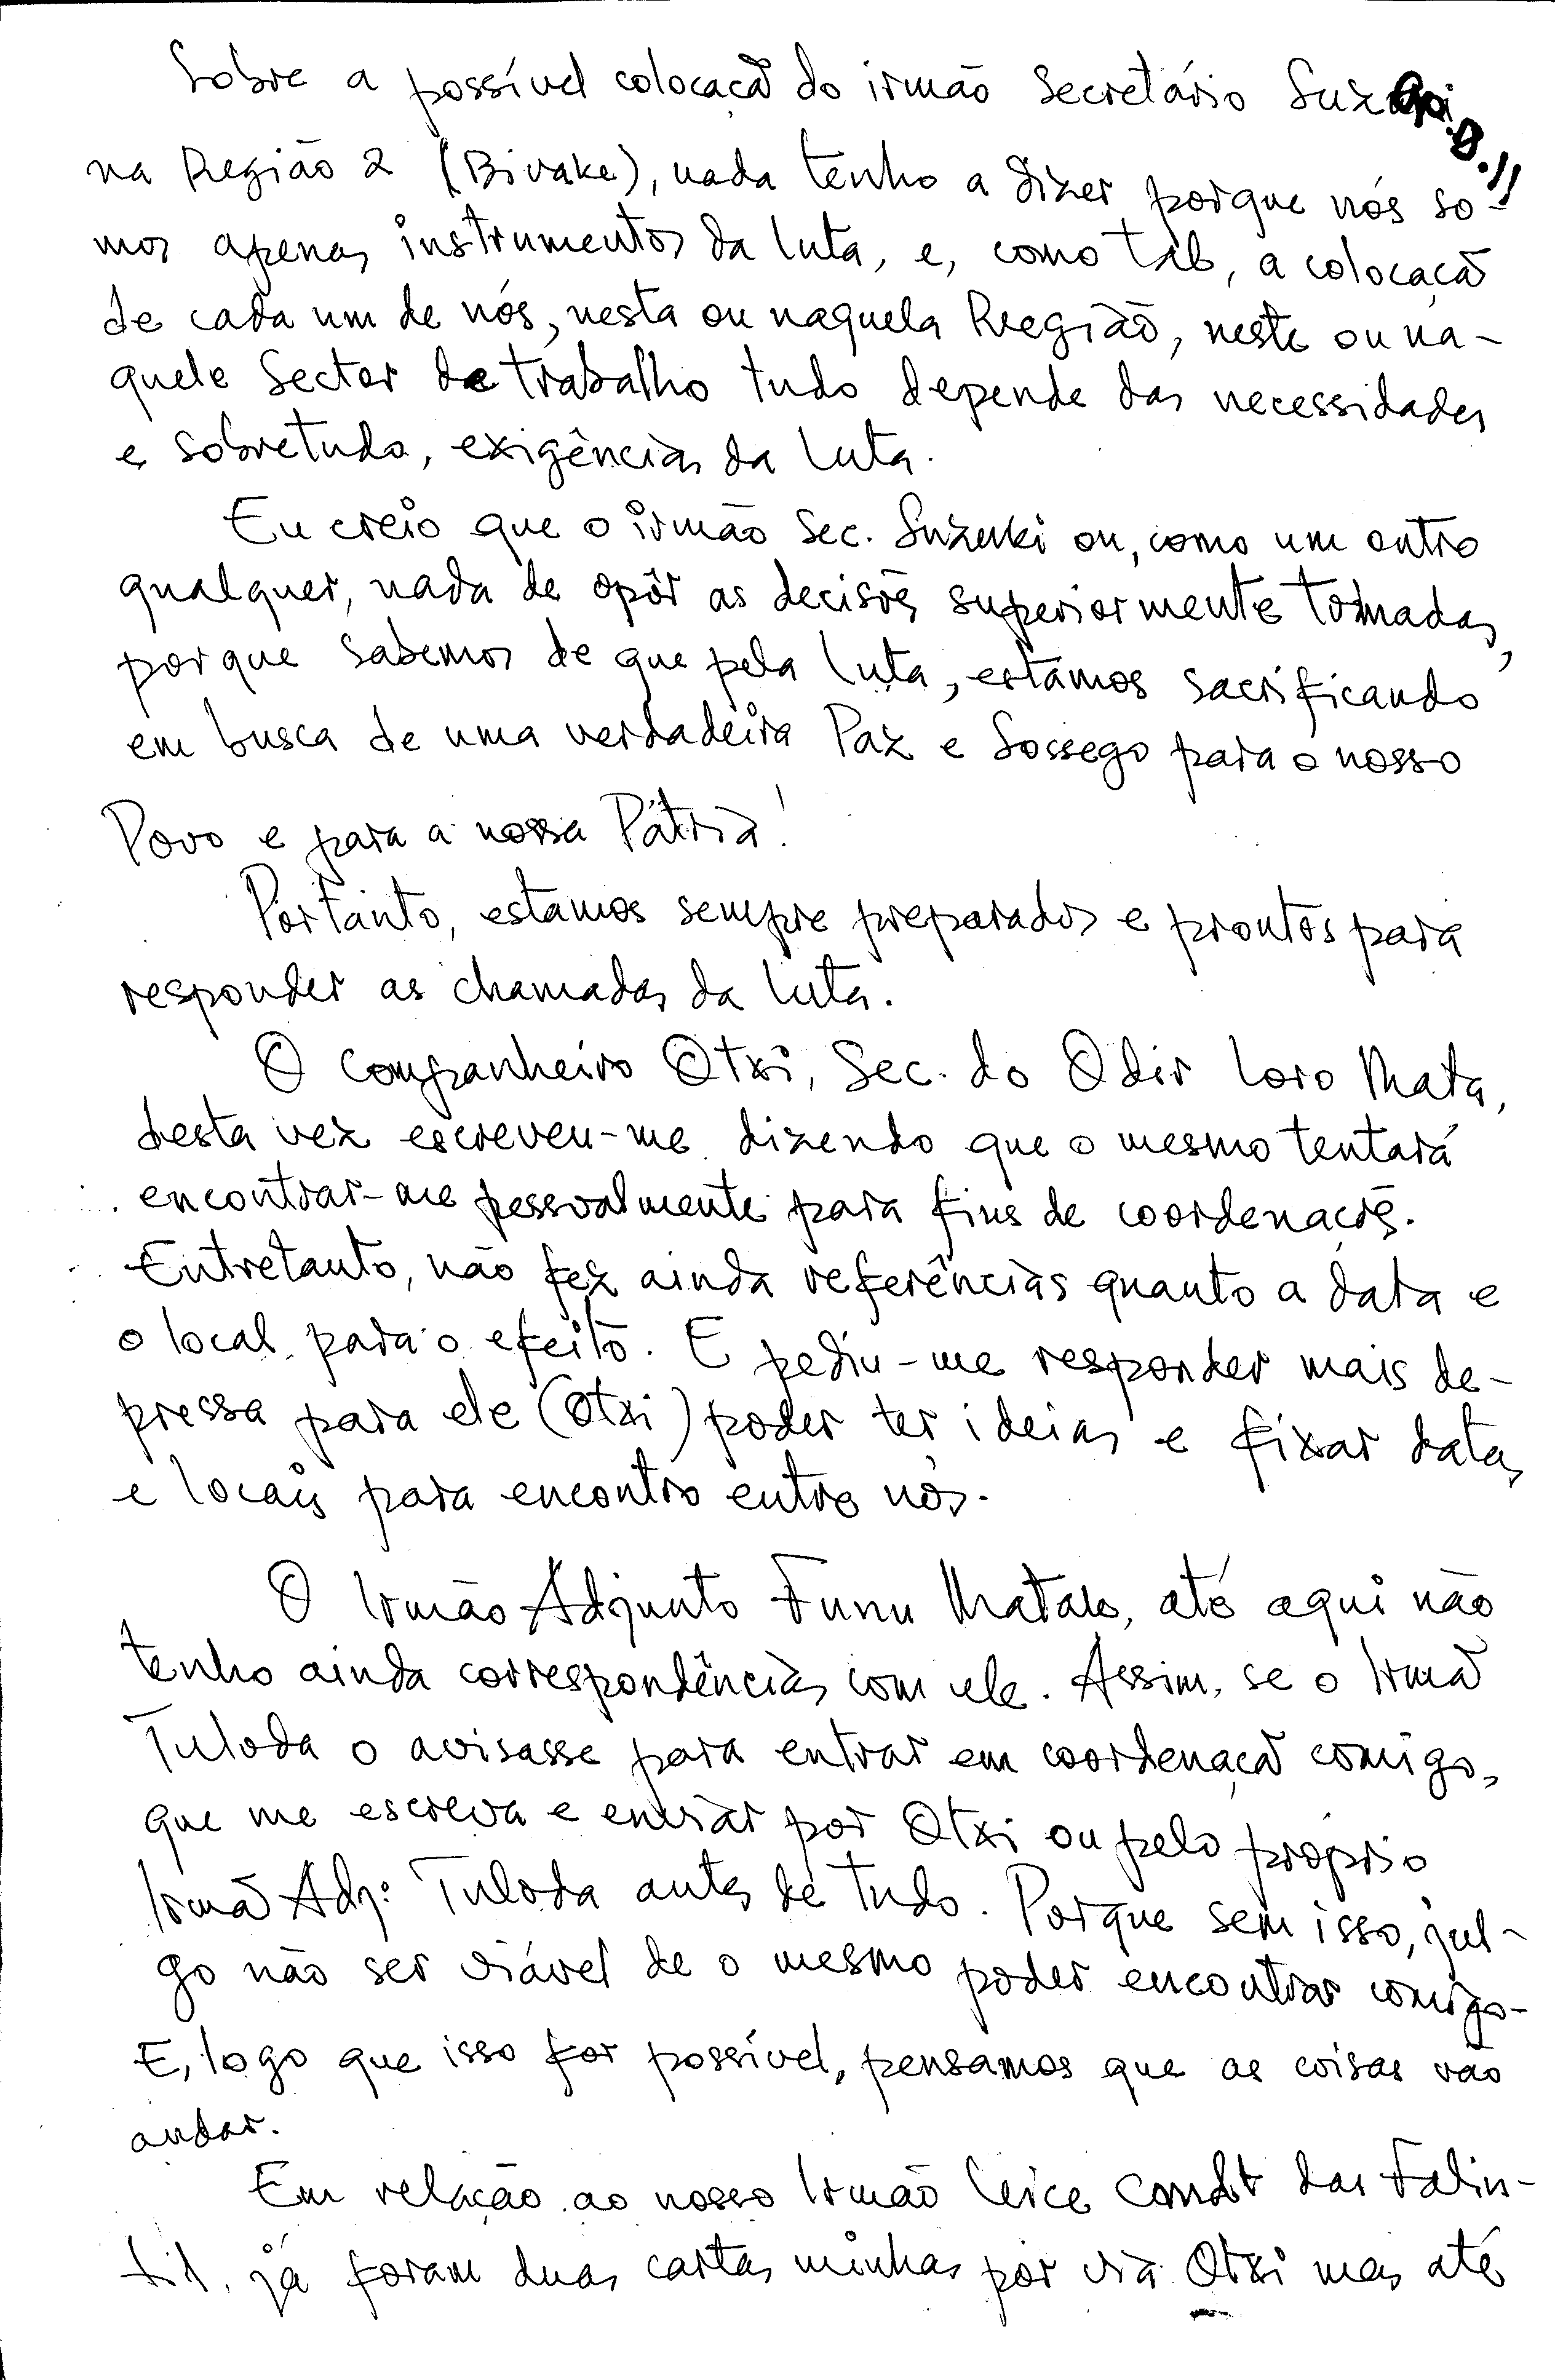 Sobre a possível colocaçã do irmão Secretário
na Região 2 (Bivake), nada tenho a dizer porque nós so-
mos apenas instrumentos da luta, e, como tab, a colocaçã
de cada um de nós, nesta ou naquela Região, neste ou na-
quele Sector de trabalho tudo depende das necessidades
e sobretudo, exigências da luta.
Eu creio que o irmão Sec. Suzuki ou, como um outro
qualquer, nada de opôr as decisões superiormente tomadas,
porque sabemos de que pela luta, estamos sacrificando
em busca de uma verdadeira Paz e Sossego para o nosso
Povo e para a nossa Pátria!
Portanto, estamos sempre preparados e prontos para
responder as chamadas da luta.
O companheiro Otxi, Sec. do Odir Loro Mata,
desta vez escreveu-me dizendo que o mesmo tentará
encontrar-me pessoalmente para fins de coordenações.
Entretanto, não fez ainda referências quanto a data e
o local para o efeito. E pediu-me responder mais de-
pressa para ele (Otxi) poder ter ideias e fixar datas
e locais para encontro entre nós.
O Irmão Adjunto Funu Matak, até aqui não
tenho ainda correspondências com ele. Assim, se o Irmã
Tuloda o avisasse para entrar em coordenaçã comigo,
que me escreva e enviar por Otxi ou pelo próprio
Irmã Adj: Tuloda antes de tudo. Porque sem isso, jul-
go não ser viável de o mesmo poder encontrar comigo.
E, logo que isso for possível, pensamos que as coisas vão
andar.
Em relação ao nosso Irmão Comdt das Falin-
til, já foram duas cartas minhas por via Otxi mas até